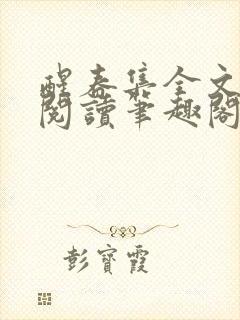 醒春集全文
閱讀筆趣閣
彭寶霞